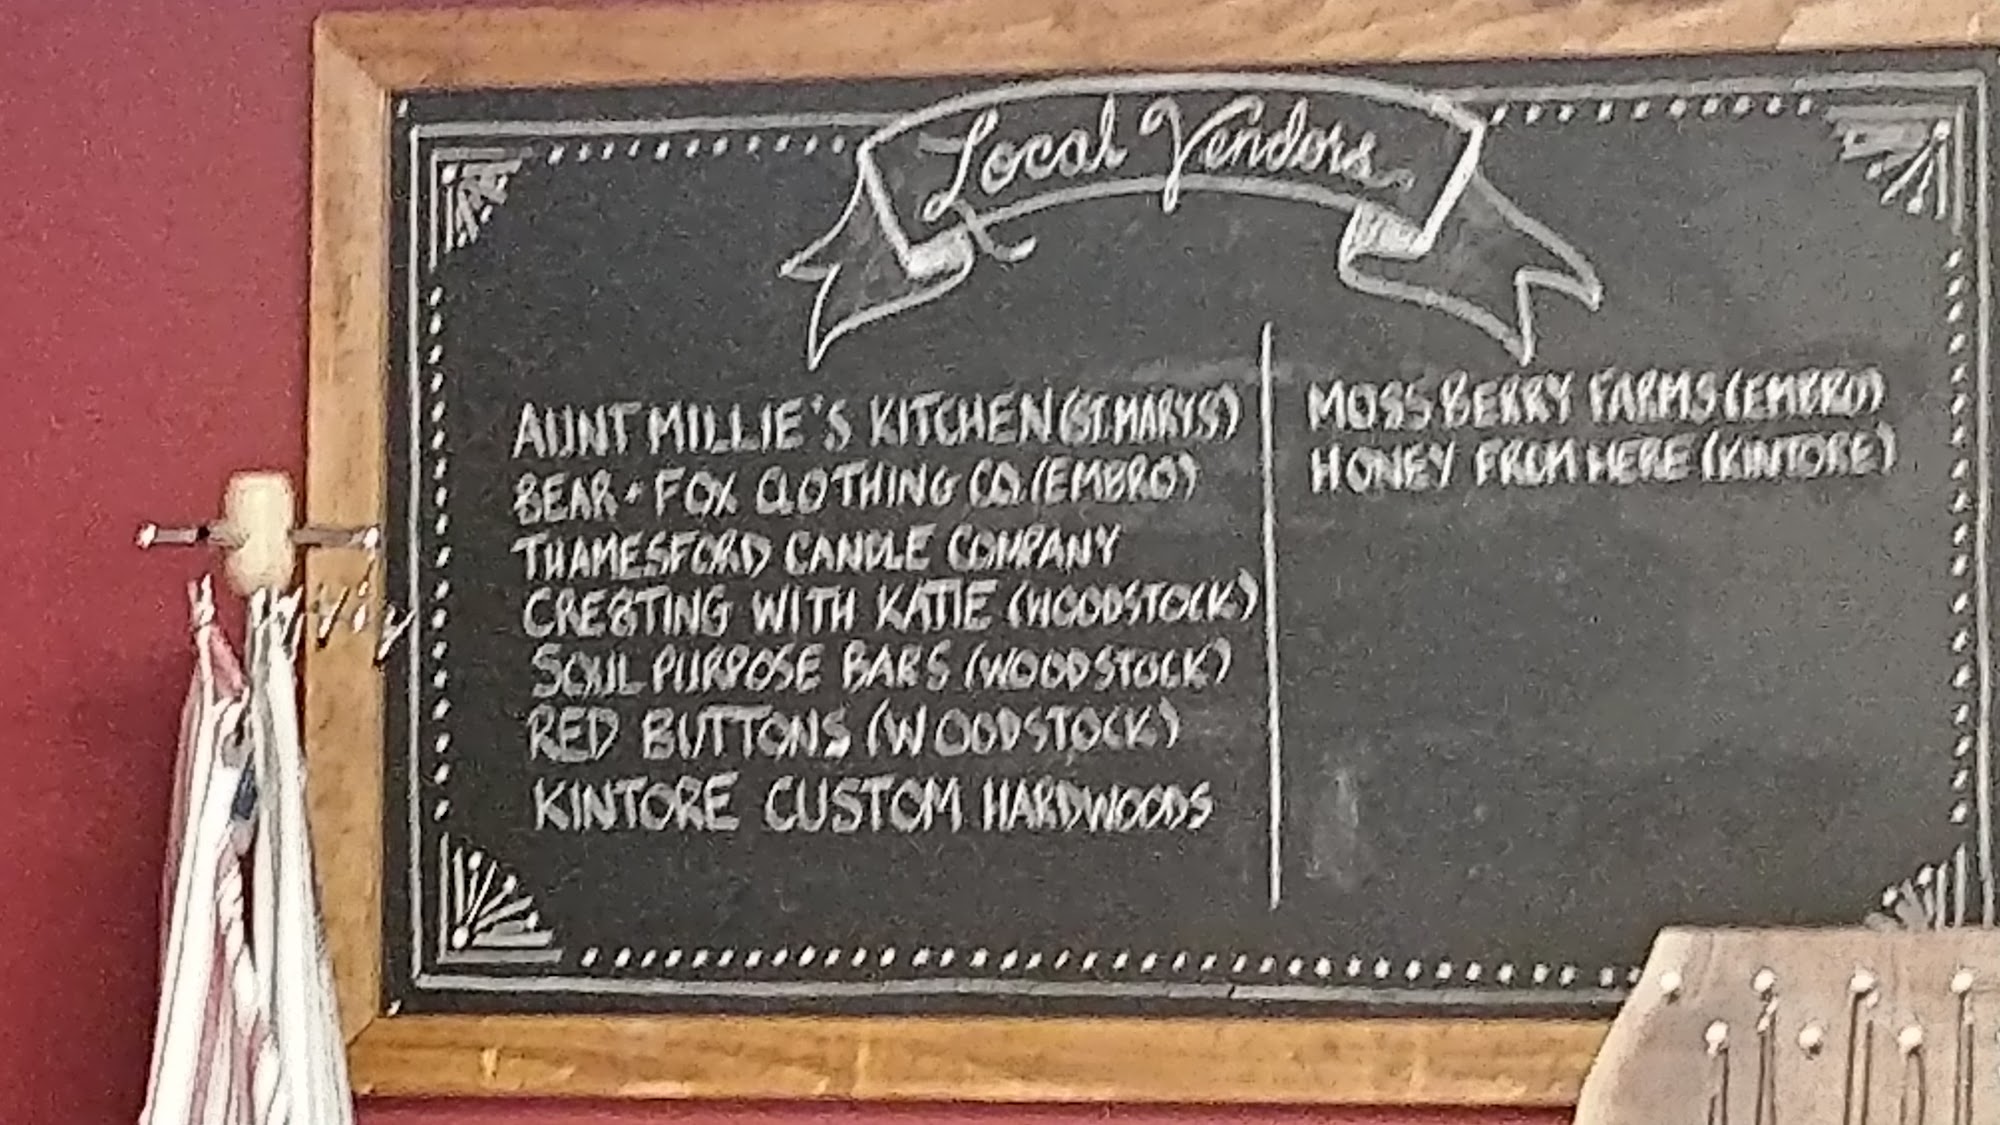 Local Vendors
AUNT MILLIE'S KITCHEN (ST. MARYS)
BEAR + FOX CLOTHING CO. (EMBRO)
THAMESFORD CANDLE COMPANY
CREATING WITH KATIE (WOODSTOCK)
SOUL PURPOSE BARS (WOODSTOCK)
RED BUTTONS (WOODSTOCK)
KINTORE CUSTOM HARDWOODS
MOSSBERRY FARMS (EMBRO)
HONEY FROM HERE (KINTORE)